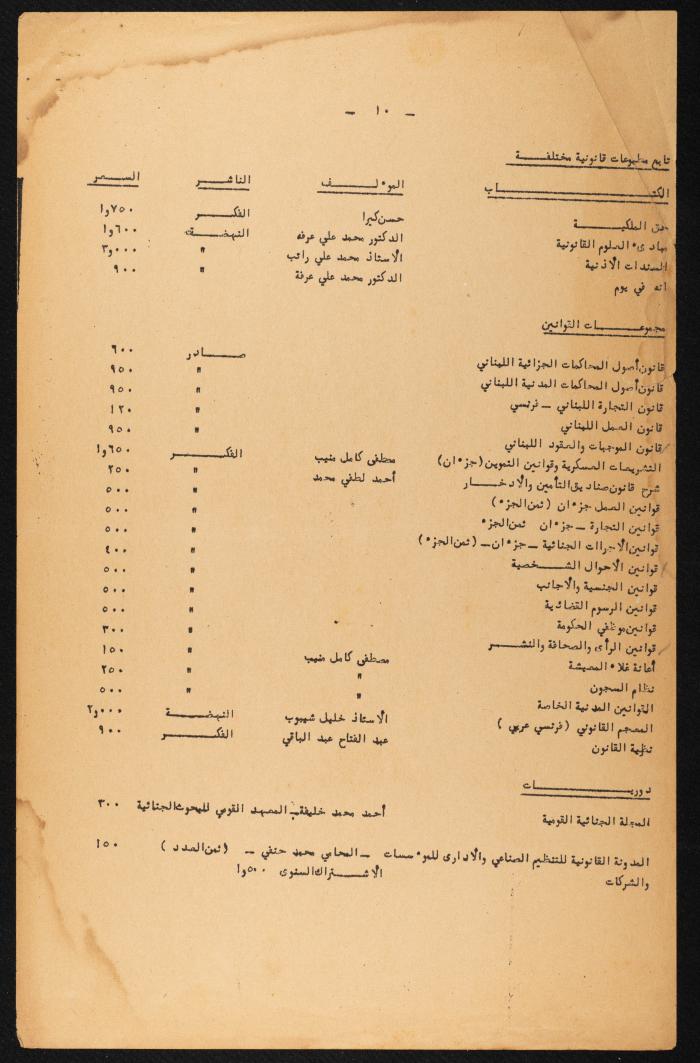 - ١٠ -
تابع مطبوعات قانونية مختلفة
الكتاب المؤلف الناشر السعر
حق الملكية حسن كيرا الفكر ١٫٧٥٠
مبادىء العلوم القانونية الدكتور محمد علي عرفه النهضة ١٫٦٠٠
السندات الاذنية الاستاذ محمد علي راتب " ٣٫٠٠٠
انه في يوم الدكتور محمد علي عرفة " ٩٠٠
مجموعات القوانين
قانون أصول المحاكمات الجزائية اللبناني صادر ٦٠٠
قانون أصول المحاكمات المدنية اللبناني " ٩٥٠
قانون التجارة اللبناني - فرنسي " ٩٥٠
قانون العمل اللبناني " ١٢٠
قانون الموجبات والعقود اللبناني " ٩٥٠
التشريعات العسكرية وقوانين التموين (جزءان) مصطفى كامل منيب الفكر ١٫٦٥٠
شرح قانون صناديق التأمين والادخار أحمد لطفي محمد " ٢٥٠
قوانين العمل جزءان (ثمن الجزء) " ٥٠٠
قوانين التجارة - جزءان ثمن الجزء " ٥٠٠
قوانين الاجراات الجنائية - جزءان - (ثمن الجزء) " ٥٠٠
قوانين الاحوال الشخصية " ٤٠٠
قوانين الجنسية والاجانب " ٥٠٠
قوانين الرسوم القضائية " ٥٠٠
قوانين موظفي الحكومة " ٥٠٠
قوانين الرأى والصحافة والنشر " ٣٠٠
أعانة غلاء المعيشة مصطفى كامل منيب " ١٥٠
نظام السجون " " ٢٥٠
القوانين المدنية الخاصة " " ٥٠٠
المعجم القانوني (فرنسي عربي) الاستاذ خليل شيبوب النهضة ٢٫٠٠٠
نظرية القانون عبد الفتاح عبد الباقي الفكر ٩٠٠
دوريات
المجلة الجنائية القومية أحمد محمد خليفة - المعهد القومي للبحوث الجنائية ٣٠٠
المدونة القانونية للتنظيم الصناعي والادارى للمؤسسات - المحامي محمد حنفي - (ثمن العدد) ١٥٠
والشركات الاشتراك السنوى ١٫٥٠٠